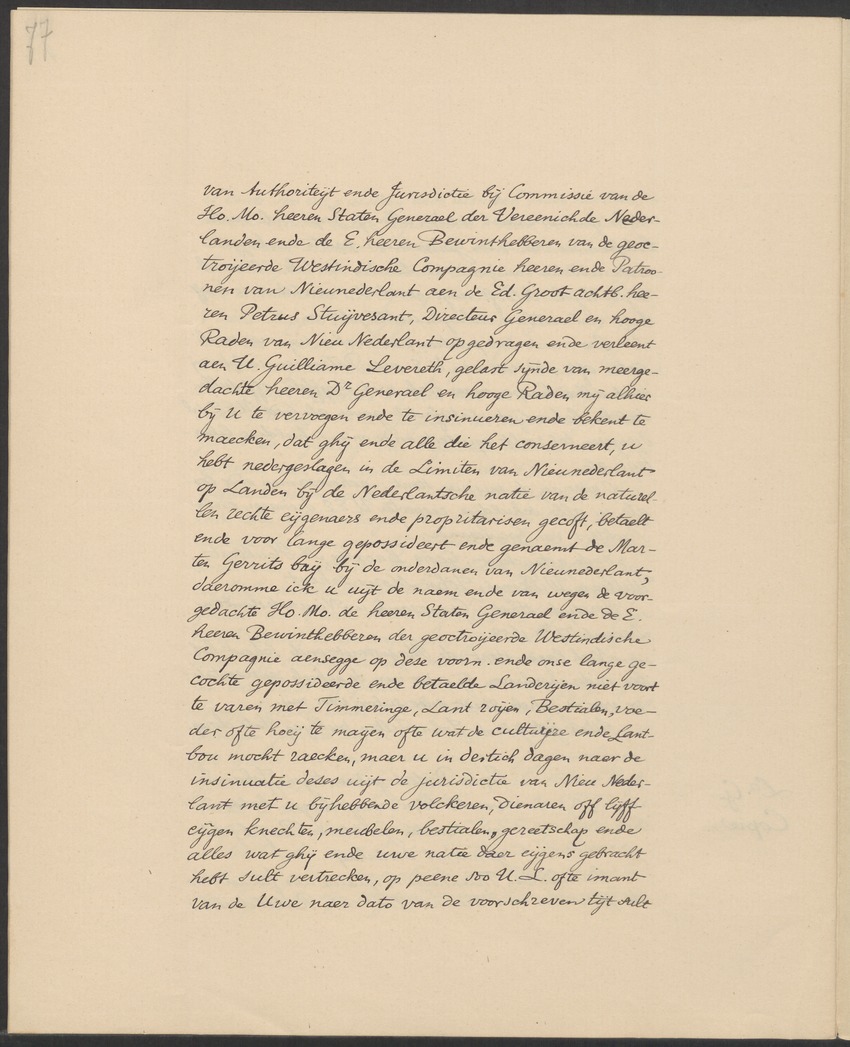 77
van Authoriteyt ende Jurisdictie bij Commissie van de
Ho. Mo. heeren Staten Generael der Vereenichde Neder-
landen ende de E. heeren Bewinthebberen van de geoc-
troijeerde Westindische Compagnie heeren ende Patroo-
nen van Nieunederlant aen de Ed. Groot achtb. hee-
ren Petrus Stuijvesant, Directeur Generael en hooge
Raden van Nieu Nederlant opgedragen ende verleent
aen U. Guilliame Levereth, gelast sÿnde van meerge-
dachte heeren Dr. Generael en hooge Raden mÿ alhier
bÿ U te vervoegen ende te insinueren ende bekent te
maecken, dat ghÿ ende alle die het conserneert, u
hebt nedergeslagen in de Limiten van Nieunederlant
op Landen bÿ de Nederlantsche natie van de naturel-
len rechte eijgenaers ende proprietarisen gecoft, betaelt
ende voor lange gepossideert ende genaemt de Mar-
ten Gerrits baij bÿ de onderdanen van Nieunederlant,
daeromme ick u uÿt de naem ende van wegen de voor-
gedachte Ho. Mo. de heeren Staten Generael ende de E.
heeren Bewinthebberen der geoctroijeerde Westindische
Compagnie aensegge op dese voorn. ende onse lange ge-
cochte gepossideerde ende betaelde Landerijen niet voort
te varen met Timmeringe, Lant roijen, Bestialen, voe-
der ofte hoeij te maÿen ofte wat de cultuijre ende Lant-
bou mocht raecken, maer u in dertich dagen naer de
insinuatie deses uijt de jurisdictie van Nieu Neder-
lant met u bÿhebbende volckeren, Dienaren off lijff
eÿgen knechten, meubelen, bestialen, gereetschap ende
alles wat ghÿ ende uwe natie daer eijgens gebracht
hebt sult vertrecken, op peene soo U. L. ofte imant
van de Uwe naer dato van de voorschreven tÿt sult